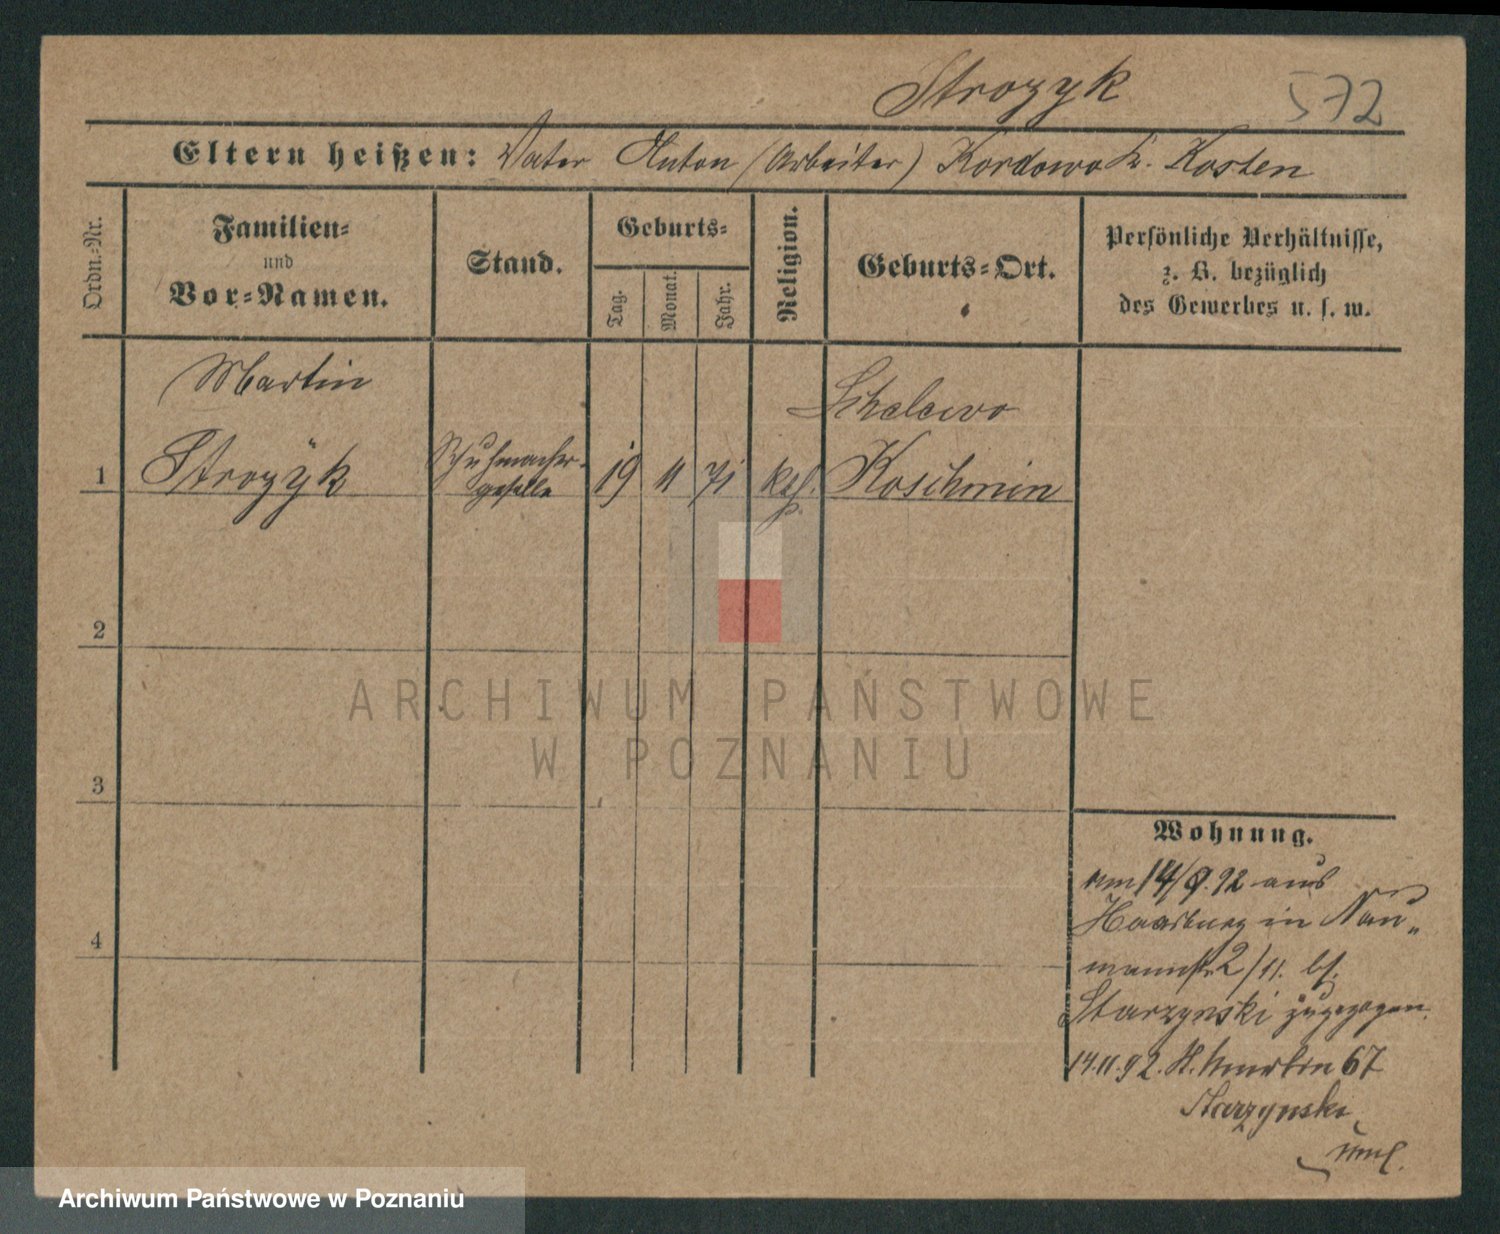 Strozyk 572
Eltern heißen: Vater Anton (Arbeiter) Kordowo Kr. Kosten
Ordn.-Nr.
Familien-
und
Vor-Namen.
Stand.
Geburts-
Tag.
Monat.
Jahr.
Religion.
Geburts-Ort.
Persönliche Verhältnisse,
z. B. bezüglich
des Gewerbes u. s. w.
Martin
1 Strozyk
Schuhmacher-
geselle
19 11 71 kath.
Skalewo
Koschmin
2
3
4
ARCHIWUM PAŃSTWOWE
W POZNANIU
Wohnung.
am 14/9.92 aus
Haarburg in Nau-
mannstr 2/11. bei
Starzynski zugezogen.
14.11.92. St. Martin 67
Starzynski
uml.
Archiwum Państwowe w Poznaniu